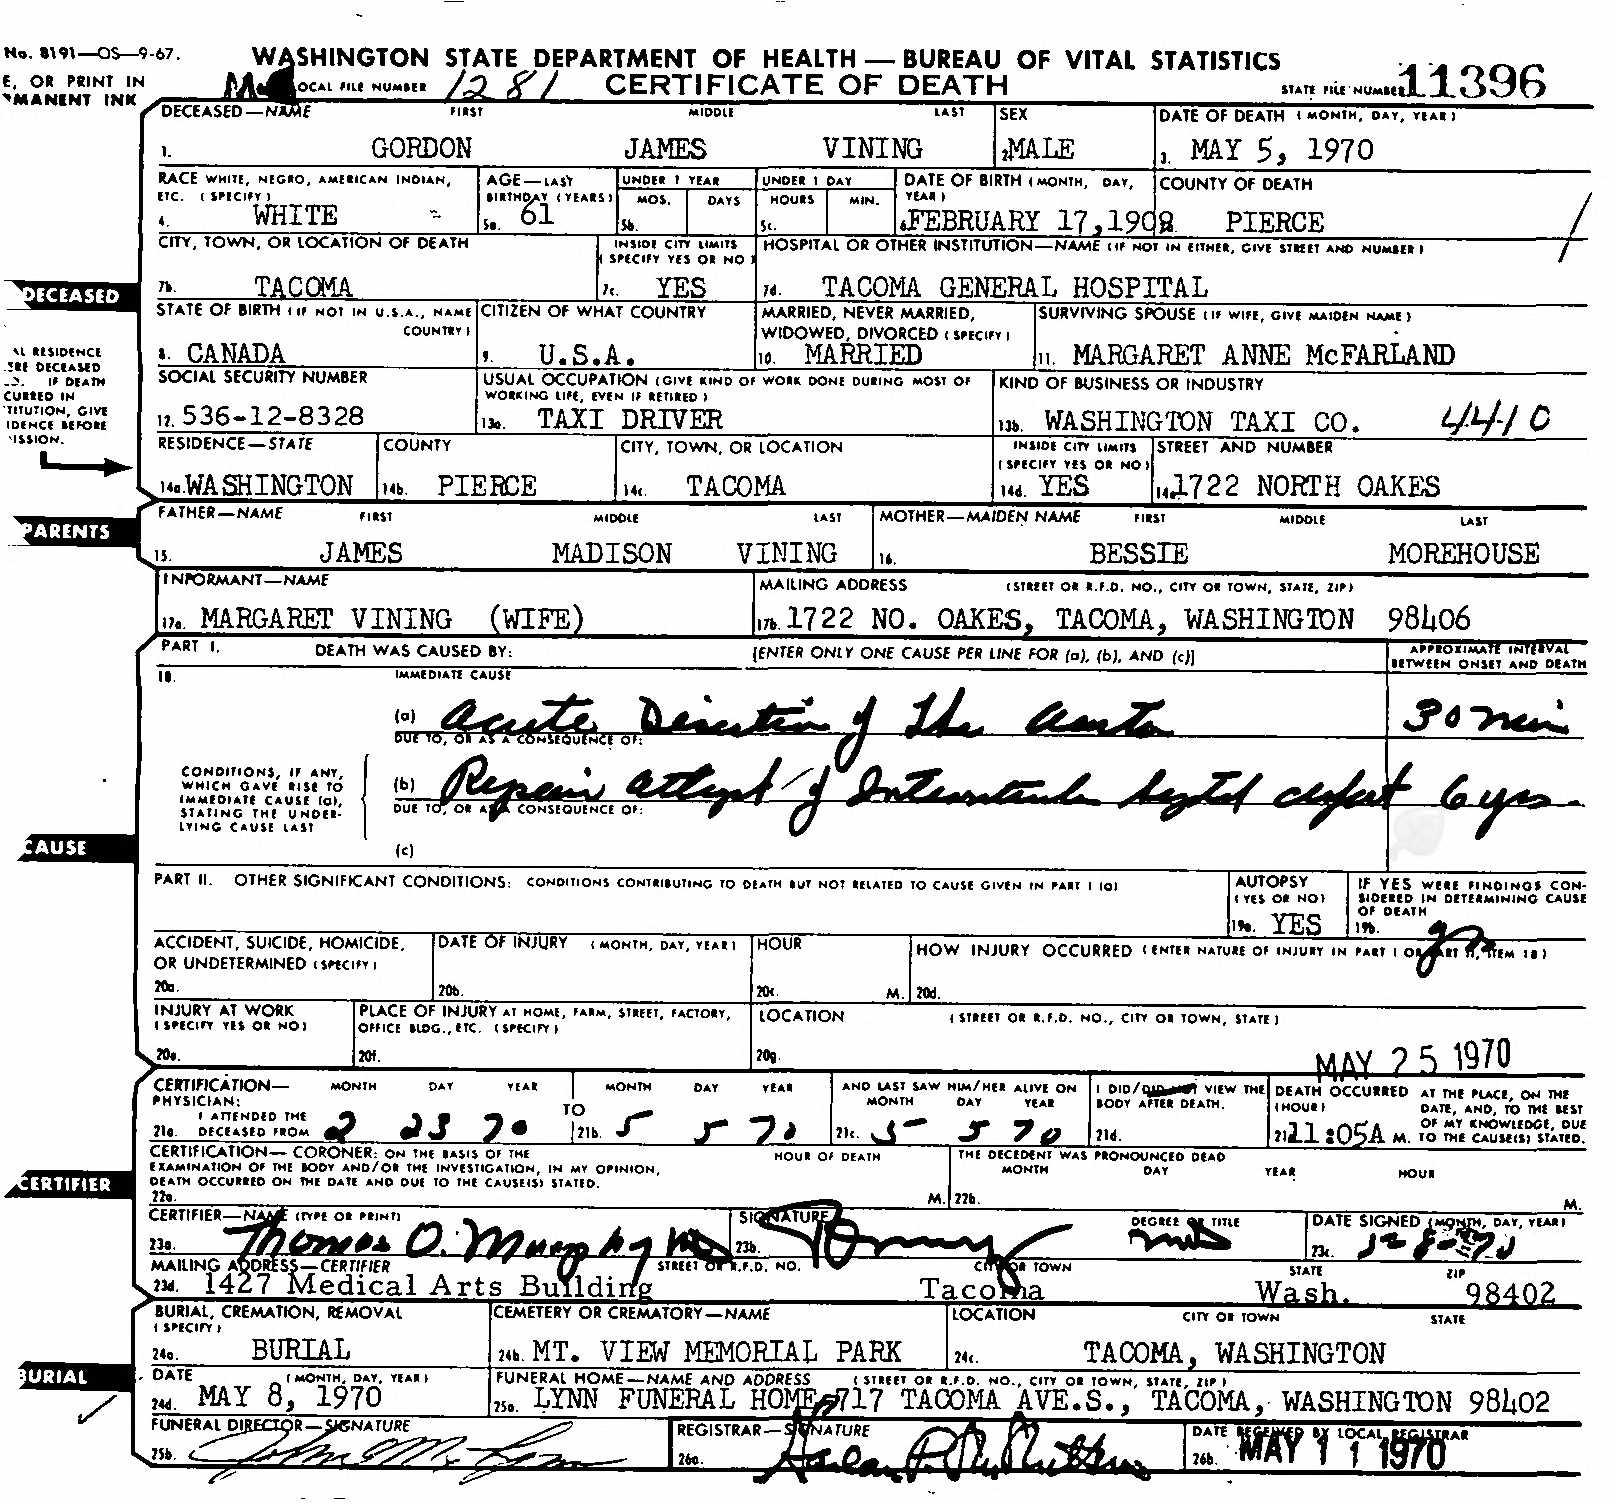 No. 8191—OS—9-67.
WASHINGTON STATE DEPARTMENT OF HEALTH — BUREAU OF VITAL STATISTICS
E, OR PRINT IN
MANENT INK
OCAL FILE NUMBER 1281 CERTIFICATE OF DEATH STATE FILE NUMBER 11396
DECEASED—NAME FIRST MIDDLE LAST SEX DATE OF DEATH (MONTH, DAY, YEAR)
1. GORDON JAMES VINING 2. MALE 3. MAY 5, 1970
RACE WHITE, NEGRO, AMERICAN INDIAN, ETC. (SPECIFY) AGE—LAST BIRTHDAY (YEARS) UNDER 1 YEAR UNDER 1 DAY DATE OF BIRTH (MONTH, DAY, YEAR) COUNTY OF DEATH
MOS. DAYS HOURS MIN.
4. WHITE 5a. 61 5b. 5c. 6. FEBRUARY 17,1908 PIERCE
CITY, TOWN, OR LOCATION OF DEATH INSIDE CITY LIMITS (SPECIFY YES OR NO) HOSPITAL OR OTHER INSTITUTION—NAME (IF NOT IN EITHER, GIVE STREET AND NUMBER)
DECEASED
7b. TACOMA 7c. YES 7d. TACOMA GENERAL HOSPITAL
STATE OF BIRTH (IF NOT IN U.S.A., NAME COUNTRY) CITIZEN OF WHAT COUNTRY MARRIED, NEVER MARRIED, WIDOWED, DIVORCED (SPECIFY) SURVIVING SPOUSE (IF WIFE, GIVE MAIDEN NAME)
8. CANADA 9. U.S.A. 10. MARRIED 11. MARGARET ANNE McFARLAND
AL RESIDENCE
RE DECEASED
IF DEATH
CURRED IN
TITUTION, GIVE
IDENCE BEFORE
ISSION.
SOCIAL SECURITY NUMBER USUAL OCCUPATION (GIVE KIND OF WORK DONE DURING MOST OF WORKING LIFE, EVEN IF RETIRED) KIND OF BUSINESS OR INDUSTRY
12. 536-12-8328 13a. TAXI DRIVER 13b. WASHINGTON TAXI CO. 4410
RESIDENCE—STATE COUNTY CITY, TOWN, OR LOCATION INSIDE CITY LIMITS (SPECIFY YES OR NO) STREET AND NUMBER
14a. WASHINGTON 14b. PIERCE 14c. TACOMA 14d. YES 14e. 1722 NORTH OAKES
PARENTS
FATHER—NAME FIRST MIDDLE LAST MOTHER—MAIDEN NAME FIRST MIDDLE LAST
15. JAMES MADISON VINING 16. BESSIE MOREHOUSE
INFORMANT—NAME MAILING ADDRESS (STREET OR R.F.D. NO., CITY OR TOWN, STATE, ZIP)
17a. MARGARET VINING (WIFE) 17b. 1722 NO. OAKES, TACOMA, WASHINGTON 98406
PART I. DEATH WAS CAUSED BY: [ENTER ONLY ONE CAUSE PER LINE FOR (a), (b), AND (c)] APPROXIMATE INTERVAL BETWEEN ONSET AND DEATH
18. IMMEDIATE CAUSE
(a) Acute Disection of the Aorta 30 min
DUE TO, OR AS A CONSEQUENCE OF:
CONDITIONS, IF ANY, WHICH GAVE RISE TO IMMEDIATE CAUSE (a), STATING THE UNDERLYING CAUSE LAST
(b) Repair attempt of Interventricular septal defect 6 yrs.
DUE TO, OR AS A CONSEQUENCE OF:
CAUSE
(c)
PART II. OTHER SIGNIFICANT CONDITIONS: CONDITIONS CONTRIBUTING TO DEATH BUT NOT RELATED TO CAUSE GIVEN IN PART I (a) AUTOPSY (YES OR NO) IF YES WERE FINDINGS CONSIDERED IN DETERMINING CAUSE OF DEATH
19a. YES 19b. yes
ACCIDENT, SUICIDE, HOMICIDE, OR UNDETERMINED (SPECIFY) DATE OF INJURY (MONTH, DAY, YEAR) HOUR HOW INJURY OCCURRED (ENTER NATURE OF INJURY IN PART I OR PART II, ITEM 18)
20a. 20b. 20c. M. 20d.
INJURY AT WORK (SPECIFY YES OR NO) PLACE OF INJURY AT HOME, FARM, STREET, FACTORY, OFFICE BLDG., ETC. (SPECIFY) LOCATION (STREET OR R.F.D. NO., CITY OR TOWN, STATE)
20e. 20f. 20g. MAY 25 1970
CERTIFICATION—PHYSICIAN: MONTH DAY YEAR MONTH DAY YEAR AND LAST SAW HIM/HER ALIVE ON MONTH DAY YEAR I DID/DID NOT VIEW THE BODY AFTER DEATH. DEATH OCCURRED (HOUR) AT THE PLACE, ON THE DATE, AND, TO THE BEST OF MY KNOWLEDGE, DUE TO THE CAUSE(S) STATED.
21a. I ATTENDED THE DECEASED FROM 2 23 70 TO 21b. 5 5 70 21c. 5 5 70 21d. 21 11:05A M.
CERTIFICATION—CORONER: ON THE BASIS OF THE EXAMINATION OF THE BODY AND/OR THE INVESTIGATION, IN MY OPINION, DEATH OCCURRED ON THE DATE AND DUE TO THE CAUSE(S) STATED. HOUR OF DEATH THE DECEDENT WAS PRONOUNCED DEAD MONTH DAY YEAR HOUR
CERTIFIER
22a. M. 22b. M.
CERTIFIER—NAME (TYPE OR PRINT) SIGNATURE DEGREE OR TITLE DATE SIGNED (MONTH, DAY, YEAR)
23a. Thomas O. Murphy MD 23b. MD 23c. 5-8-70
MAILING ADDRESS—CERTIFIER STREET OR R.F.D. NO. CITY OR TOWN STATE ZIP
23d. 1427 Medical Arts Building Tacoma Wash. 98402
BURIAL, CREMATION, REMOVAL (SPECIFY) CEMETERY OR CREMATORY—NAME LOCATION CITY OR TOWN STATE
24a. BURIAL 24b. MT. VIEW MEMORIAL PARK 24c. TACOMA, WASHINGTON
BURIAL
DATE (MONTH, DAY, YEAR) FUNERAL HOME—NAME AND ADDRESS (STREET OR R.F.D. NO., CITY OR TOWN, STATE, ZIP)
24d. MAY 8, 1970 25a. LYNN FUNERAL HOME, 717 TACOMA AVE.S., TACOMA, WASHINGTON 98402
FUNERAL DIRECTOR—SIGNATURE REGISTRAR—SIGNATURE DATE RECEIVED BY LOCAL REGISTRAR
25b. 26a. 26b. MAY 11 1970